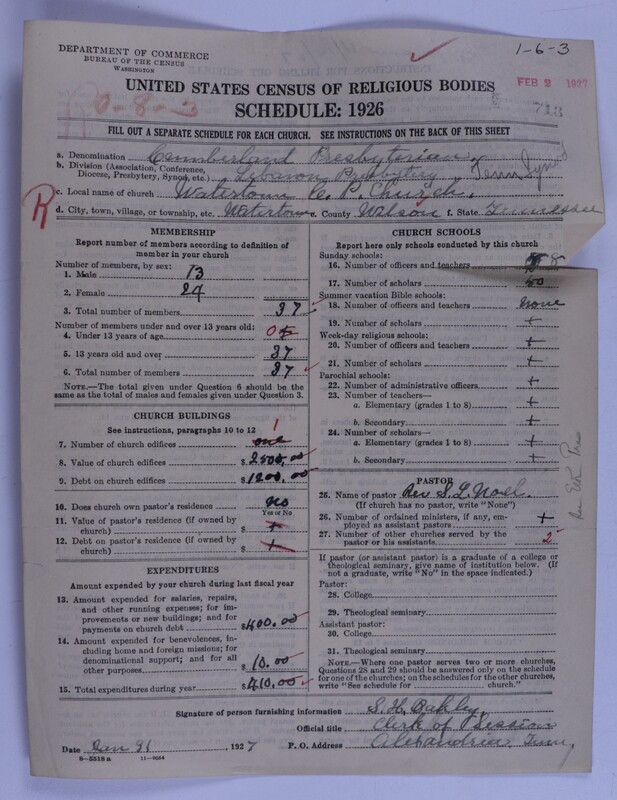 DEPARTMENT OF COMMERCE
BUREAU OF THE CENSUS
WASHINGTON
1-6-3
FEB 2 1927
UNITED STATES CENSUS OF RELIGIOUS BODIES
0-8-3
SCHEDULE: 1926
713
FILL OUT A SEPARATE SCHEDULE FOR EACH CHURCH. SEE INSTRUCTIONS ON THE BACK OF THIS SHEET
a. Denomination Cumberland Presbyterian
b. Division (Association, Conference,
Diocese, Presbytery, Synod, etc.) Lebanon Presbytery Tenn Synod
c. Local name of church Watertown C. P. Church.
R
d. City, town, village, or township, etc. Watertown e. County Wilson f. State Tennessee
MEMBERSHIP
Report number of members according to definition of
member in your church
Number of members, by sex:
1. Male 13
2. Female 24
3. Total number of members 37
Number of members under and over 13 years old:
4. Under 13 years of age 0
5. 13 years old and over 37
6. Total number of members 37
NOTE.—The total given under Question 6 should be the
same as the total of males and females given under Question 3.
CHURCH BUILDINGS
See instructions, paragraphs 10 to 12
7. Number of church edifices one 1
8. Value of church edifices $2500.00
9. Debt on church edifices $1200.00
10. Does church own pastor's residence No
Yes or No
11. Value of pastor's residence (if owned by
church) $ +
12. Debt on pastor's residence (if owned by
church) $ +
EXPENDITURES
Amount expended by your church during last fiscal year
13. Amount expended for salaries, repairs,
and other running expenses; for im-
provements or new buildings; and for
payments on church debt $400.00
14. Amount expended for benevolences, in-
cluding home and foreign missions; for
denominational support; and for all
other purposes $10.00
15. Total expenditures during year $410.00
CHURCH SCHOOLS
Report here only schools conducted by this church
Sunday schools:
16. Number of officers and teachers 8
17. Number of scholars 50
Summer vacation Bible schools:
18. Number of officers and teachers none
19. Number of scholars +
Week-day religious schools:
20. Number of officers and teachers +
21. Number of scholars +
Parochial schools:
22. Number of administrative officers +
23. Number of teachers—
a. Elementary (grades 1 to 8) +
b. Secondary +
24. Number of scholars—
a. Elementary (grades 1 to 8) +
b. Secondary +
PASTOR
25. Name of pastor Rev S. L. Noel.
(If church has no pastor, write "None")
26. Number of ordained ministers, if any, em-
ployed as assistant pastors +
27. Number of other churches served by the
pastor or his assistants 2
If pastor (or assistant pastor) is a graduate of a college or
theological seminary, give name of institution below. (If
not a graduate, write "No" in the space indicated.)
Pastor:
28. College
29. Theological seminary
Assistant pastor:
30. College
31. Theological seminary
NOTE.—Where one pastor serves two or more churches,
Questions 28 and 29 should be answered only on the schedule
for one of the churches; on the schedules for the other churches,
write "See schedule for church."
Signature of person furnishing information S. H. Oakley,
Official title Clerk of Session
Date Jan 31, 1927 P. O. Address Alexandria, Tenn,
8-5518 a 11-9224